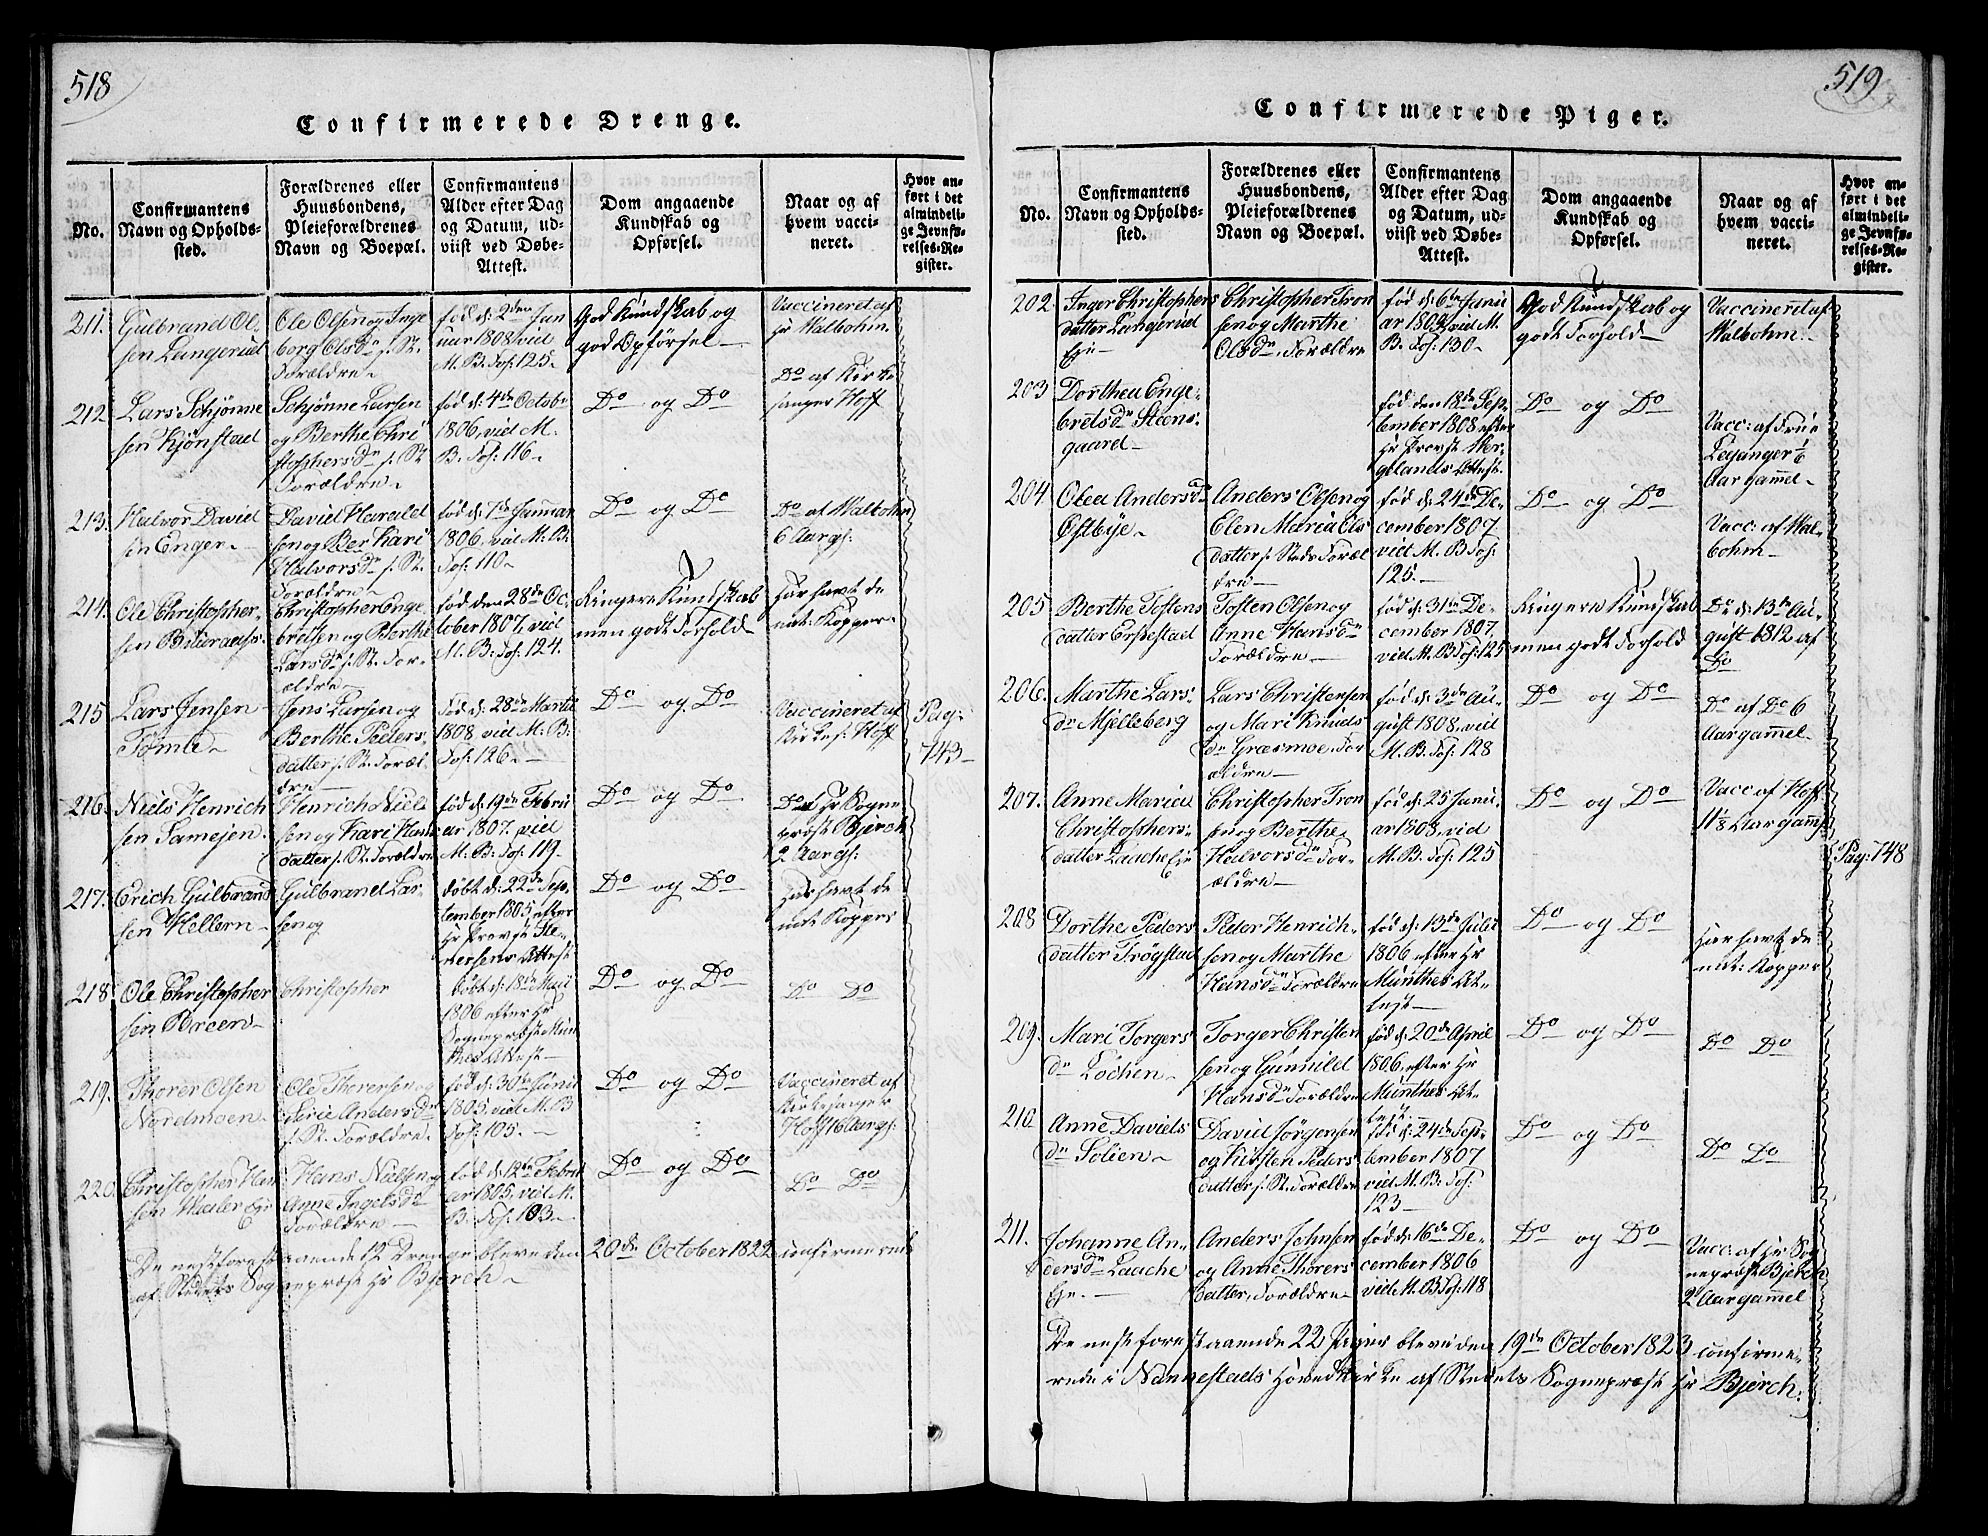 518
Confirmerede Drenge.
No.
Confirmantens
Navn og Opholds-
sted.
Forældrenes eller
Huusbondens,
Pleieforældrenes
Navn og Boepæl.
Confirmantens
Alder efter Dag
og Datum, ud-
viist ved Døbe-
Attest.
Dom angaaende
Kundskab og
Opførsel.
Naar og af
hvem vacci-
neret.
Hvor an-
ført i det
almindeli-
ge Jevnfø-
relses-Re-
gister.
211.
Gulbrand Ol-
sen Langerud
Ole Olsen og Inge
borg Olsdr s. St.
Forældre
fød d: 2den Jan
uar 1808 vid
M. B. Fol: 125.
God Kundskab og
god Opførsel
Vaccineret af
Hr Walbohm.
212
Lars Schjønne
sen Kjønstad
Schjønne Larsen
og Berthe Chri
stophersdr s. St
Forældre
fød d: 4de Octobr
1806, vid M.
B. Fol: 116
Do og Do
Do af Kirke
sanger Hoff
213.
Halvor David
sen Enger
David Harald
sen og Kari
Halvorsdr s. St.
Forældre
fød d: 7de Januar
1806. vid M. B.
Fol: 110
Do og Do
Do af Walbohm
6 Aar gl:
214.
Ole Christopher-
sen
Christopher Enge
bretsen og Berthe
Larsdr s. St. For-
ældre
fød den 28de Oc-
tober 1807, vid
M. B: Fol: 124.
Ringere Kundskab
men godt Forhold
Har havt de
nat: Kopper
215
Lars Jensen
Tømte
Jens Larsen og
Berthe Peders-
datter s. St. Foræl-
dre
Fød d: 28de Martii
1808 vid M. B:
Fol: 126.
Do og Do
Vaccineret af
Kirkes: Hoff
Pag:
743
216
Niels Henrich
sen Samejen
Henrich Niel
sen og Kari Hans
datter s. St. Forældre
fød d: 19de Febru
ar 1807. vid
M: B: Fol: 119
Do og Do
Do af Hr Sogne
præst Bjerch
2 Aar gl:
217.
Erich Gulbrand
sen Hellern
Gulbrand Lar-
sen og
døbt d: 22de Sep-
tember 1805, efter
Hr Provst Ste-
nersens Attest
Do og Do
Har havt de
nat: Kopper
218
Ole Christopher
sen Breen
Christopher
døbt d: 18de Maii
1806 efter Hr
Sognepræst Mun
thes Attest
Do og Do
Do Do
219.
Thorer Olsen
Nordmoen
Ole Thorersen og
Siri Andersdr
s. St. Forældre.
fød d: 30te Junii
1805, vid M. B
Fol: 105.
Do og Do
Vaccineret af
Kirkesanger
Hoff 16 Aar gl:
220.
Christopher Han
sen Eje
Hans Nielsen og
Anne Ingelsdr
Forældre
fød d: 12te Febru
ar 1805, vid M.
B. Fol: 103
Do og Do
Do Do
De næstforestaaende 12 Drenge bleve den 20de October 1822 confirmerede
af Stedets Sognepræst Hr Bjerch
519
Confirmerede Piger.
No.
Confirmantens
Navn og Opholds-
sted.
Forældrenes eller
Huusbondens,
Pleieforældrenes
Navn og Boepæl.
Confirmantens
Alder efter Dag
og Datum, ud-
viist ved Døbe-
Attest.
Dom angaaende
Kundskab og
Opførsel.
Naar og af
hvem vacci-
neret.
Hvor an-
ført i det
almindeli-
ge Jevnfø-
relses-Re-
gister.
202.
Inger Christophers
datter Langerud
Eje
Christopher Tron
sen og Marthe
Olsdr, Forældre
fød d: 6te Janu
ar 1809, vid M.
B. Fol: 130
God Kundskab og
godt Forhold
Vaccineret af
Walbohm.
203
Dorthea Enge-
bretsdr Steens-
gaard
fød den 18de Sep-
tember 1808 efter
Hr Provst Wer-
gelands Attest
Do og Do
Vacc: af Frue
Leganger 1/6
Aar gammel
204
Olea Andersdr
Østbye
Anders Olsen og
Elen Maria Ols
datter s. Steds Foræl
dre
fød d: 24de De-
cember 1807
vid M. B Fol:
125.
Do og Do
Vacc: af Wal-
bohm
205
Berthe Tostens
datter Erpestad
Tosten Olsen og
Anne Hansdr
Forældre
fød d: 31te De-
cember 1807,
vid M. B Fol: 125
Ringere Kundskab
men godt Forhold
Do d: 13de Au-
gust 1812 af
Do
206.
Marthe Lars-
dr Mjelleberg
Lars Christensen
og Mari Knuds
dr Græsmoe, For
ældre
fød d: 3de Au-
gust 1808, vid
M. B. Fol: 128
Do og Do
Do af Do 6
Aar gammel
207.
Anne Maria
Christophers-
datter Laache Eje
Christopher Tron
sen og Berthe
Halvorsdr For-
ældre
fød d: 25 Janu-
ar 1808, vid
M. B. Fol: 125
Do og Do
Vacc af Hoff
11 1/8 Aar gaml
Pag: 748
208
Dorthe Peders
datter Trøgstad
Peder Henrich-
sen og Marthe
Hansdr Forældre
fød d: 13de Julii
1806 efter Hr
Munthes At-
test
Do og Do
Har havt de
nat: Kopper
209.
Mari Torgers
dr Løchen
Torger Christen
sen og Gunnild
Hansdr Forældre
fød d: 20de April
1806, efter Hr
Munthes At-
test
Do og Do
Do Do
210
Anne Davids
dr Solien
David Jørgensen
og Kirsten Peders
datter s. St. Forældre
fød d: 24de Sep-
tember 1807
vid M. B. Fol:
123
Do og Do
Do Do
211.
Johanne An-
dersdr Laache
Eje.
Anders Johnsen
og Anne Thorers
datter, Forældre
fød d: 16de De-
cember 1806
vid M. B Fol: 118
Do og Do
Vacc: af Hr Sog
nepræst Bjerch
2 Aar gammel
De næstforestaaende 22 Piger bleve den 19de October 1823 confirme-
rede i Nannestads Hovedkirke af Stedets Sognepræst Hr Bjerch.